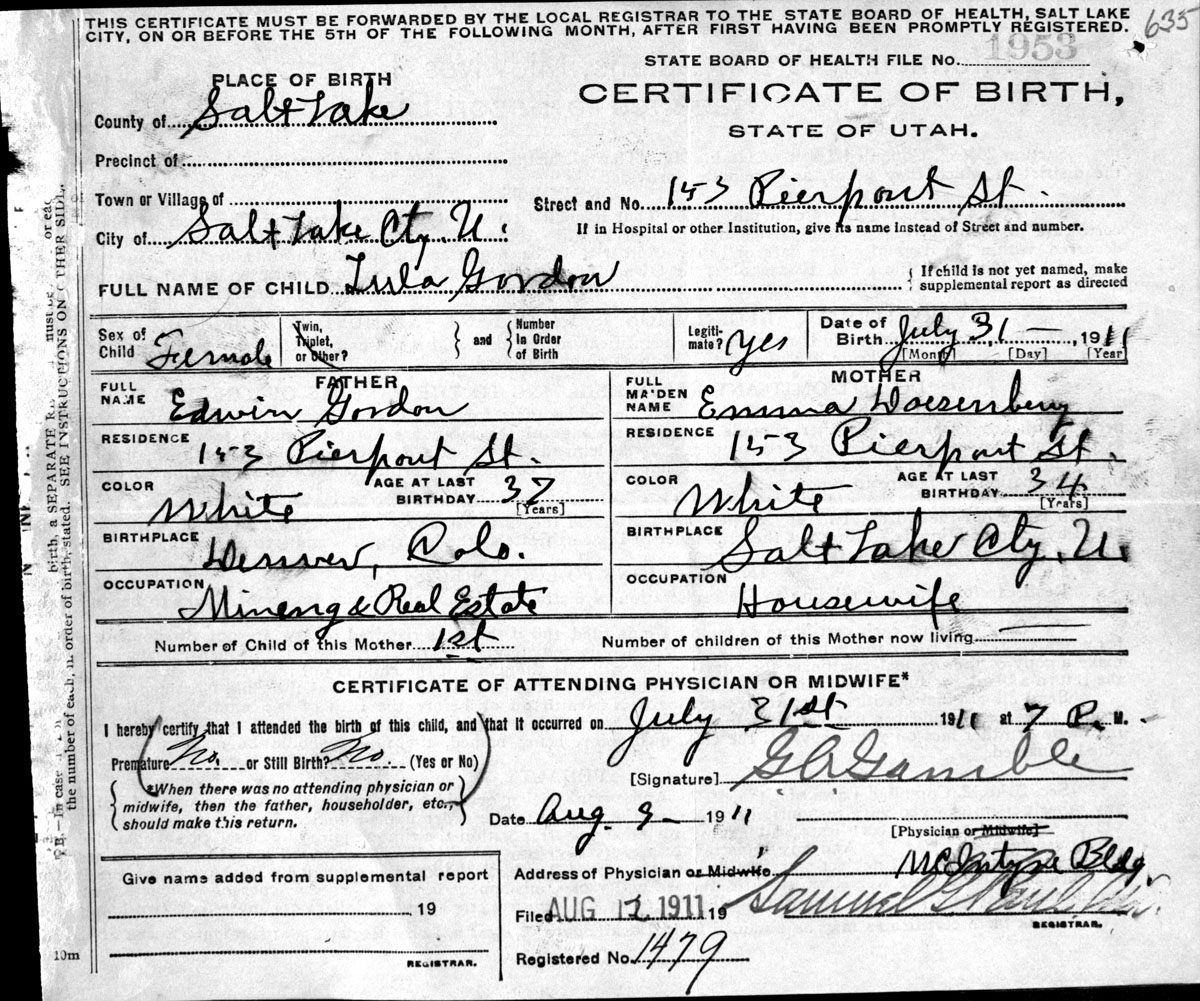 THIS CERTIFICATE MUST BE FORWARDED BY THE LOCAL REGISTRAR TO THE STATE BOARD OF HEALTH, SALT LAKE
CITY, ON OR BEFORE THE 5TH OF THE FOLLOWING MONTH, AFTER FIRST HAVING BEEN PROMPTLY REGISTERED.
635
STATE BOARD OF HEALTH FILE No. 1953
PLACE OF BIRTH
CERTIFICATE OF BIRTH,
STATE OF UTAH.
County of Salt Lake
Precinct of
Town or Village of
Street and No. 153 Pierpont St.
City of Salt Lake Cty. U.
If in Hospital or other Institution, give its name instead of Street and number.
FULL NAME OF CHILD Lula Gordon
If child is not yet named, make
supplemental report as directed
Sex of Child Female
Twin, Triplet, or Other?
and
Number in Order of Birth
Legiti-mate? Yes
Date of Birth July 31 — 1911
[Month] [Day] [Year]
FATHER
FULL NAME Edwin Gordon
RESIDENCE 153 Pierpont St.
COLOR White
AGE AT LAST BIRTHDAY 37
[Years]
BIRTHPLACE Denver, Colo.
OCCUPATION Mining & Real Estate
MOTHER
FULL MAIDEN NAME Emma
RESIDENCE 153 Pierpont St.
COLOR White
AGE AT LAST BIRTHDAY 34
[Years]
BIRTHPLACE Salt Lake Cty. U.
OCCUPATION Housewife
Number of Child of this Mother 1st
Number of children of this Mother now living
CERTIFICATE OF ATTENDING PHYSICIAN OR MIDWIFE*
I hereby certify that I attended the birth of this child, and that it occurred on July 31st 1911 at 7 P. M.
Premature No. or Still Birth? No. (Yes or No)
[Signature] G A Gamble
*When there was no attending physician or
midwife, then the father, householder, etc.,
should make this return.
Date Aug. 9 1911
[Physician or Midwife]
Address of Physician or Midwife McIntyre Bldg.
Give name added from supplemental report
19
REGISTRAR.
Filed AUG 12 1911 19
Samuel G
REGISTRAR.
Registered No. 1479
10m
birth, a SEPARATE
must be
or eac
the number of each, in order of birth, stated. SEE INSTRUCTIONS ON OTHER SIDE.